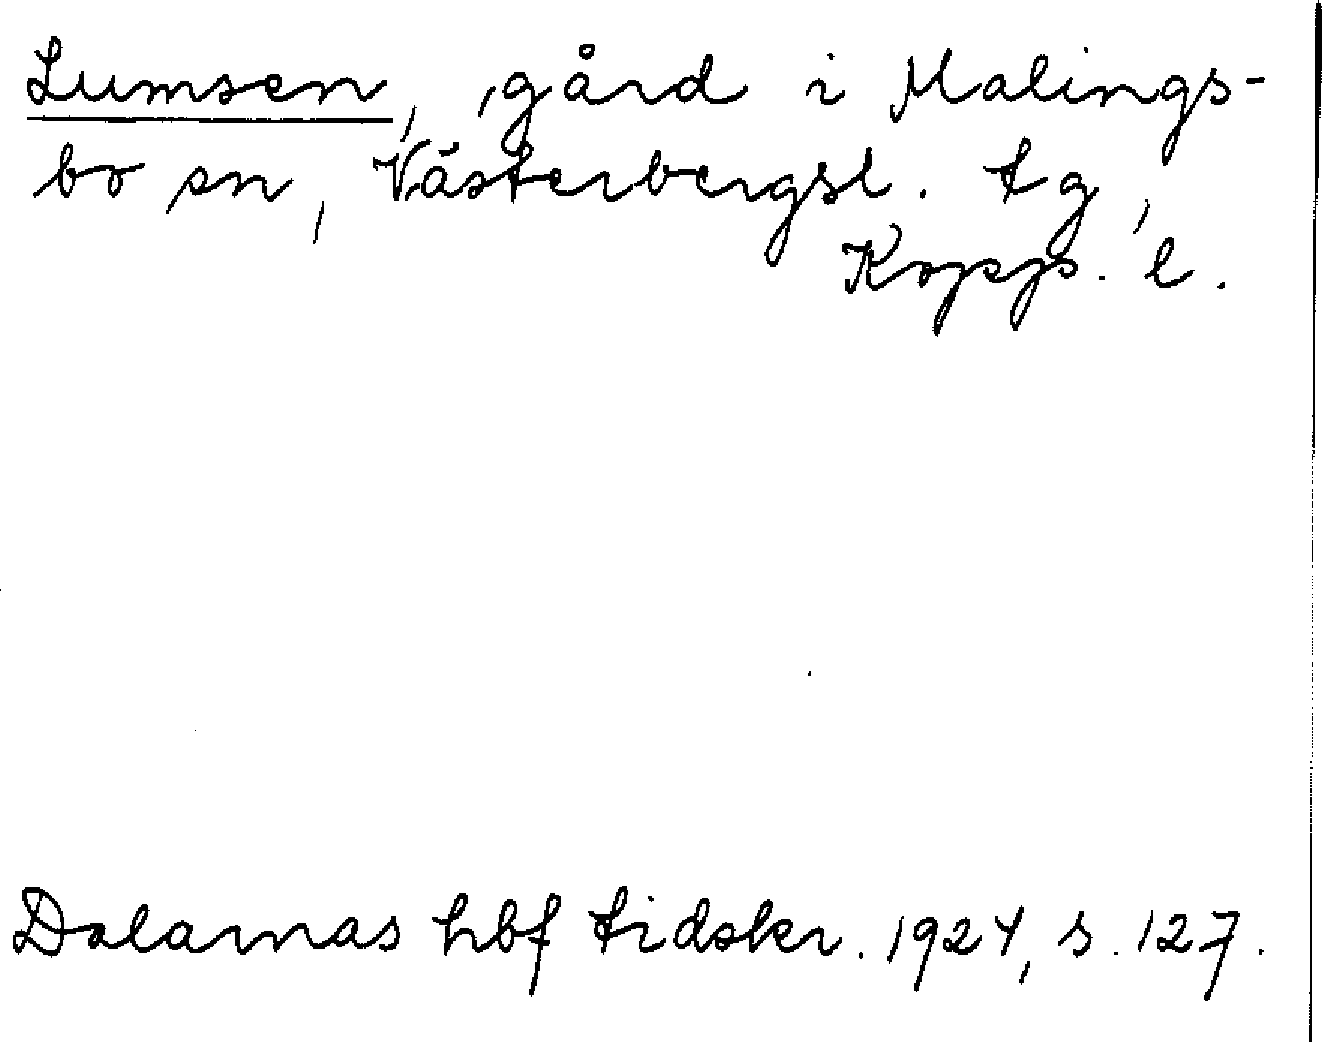 Lumsen, gård i Malings-
bo sn, Västerbergsl. tg,
Kopp. l.
Dalarnas hbf tidskr. 1924, s. 127.